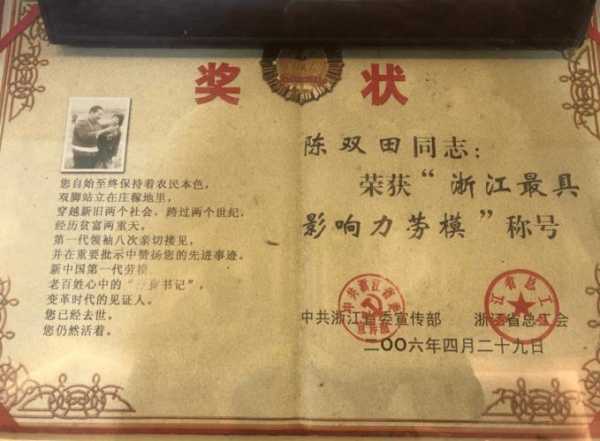 奖 状
您自始至终保持着农民本色，
双脚站立在庄稼地里，
穿越新旧两个社会，跨过两个世纪，
经历贫富两重天。
第一代领袖八次亲切接见，
并在重要批示中赞扬您的先进事迹。
新中国第一代劳模，
老百姓心中的“书记”，
变革时代的见证人。
您已经去世，
您仍然活着。
陈双田同志：
荣获“浙江最具
影响力劳模”称号
中共浙江省委宣传部 浙江省总工会
二〇〇六年四月二十九日